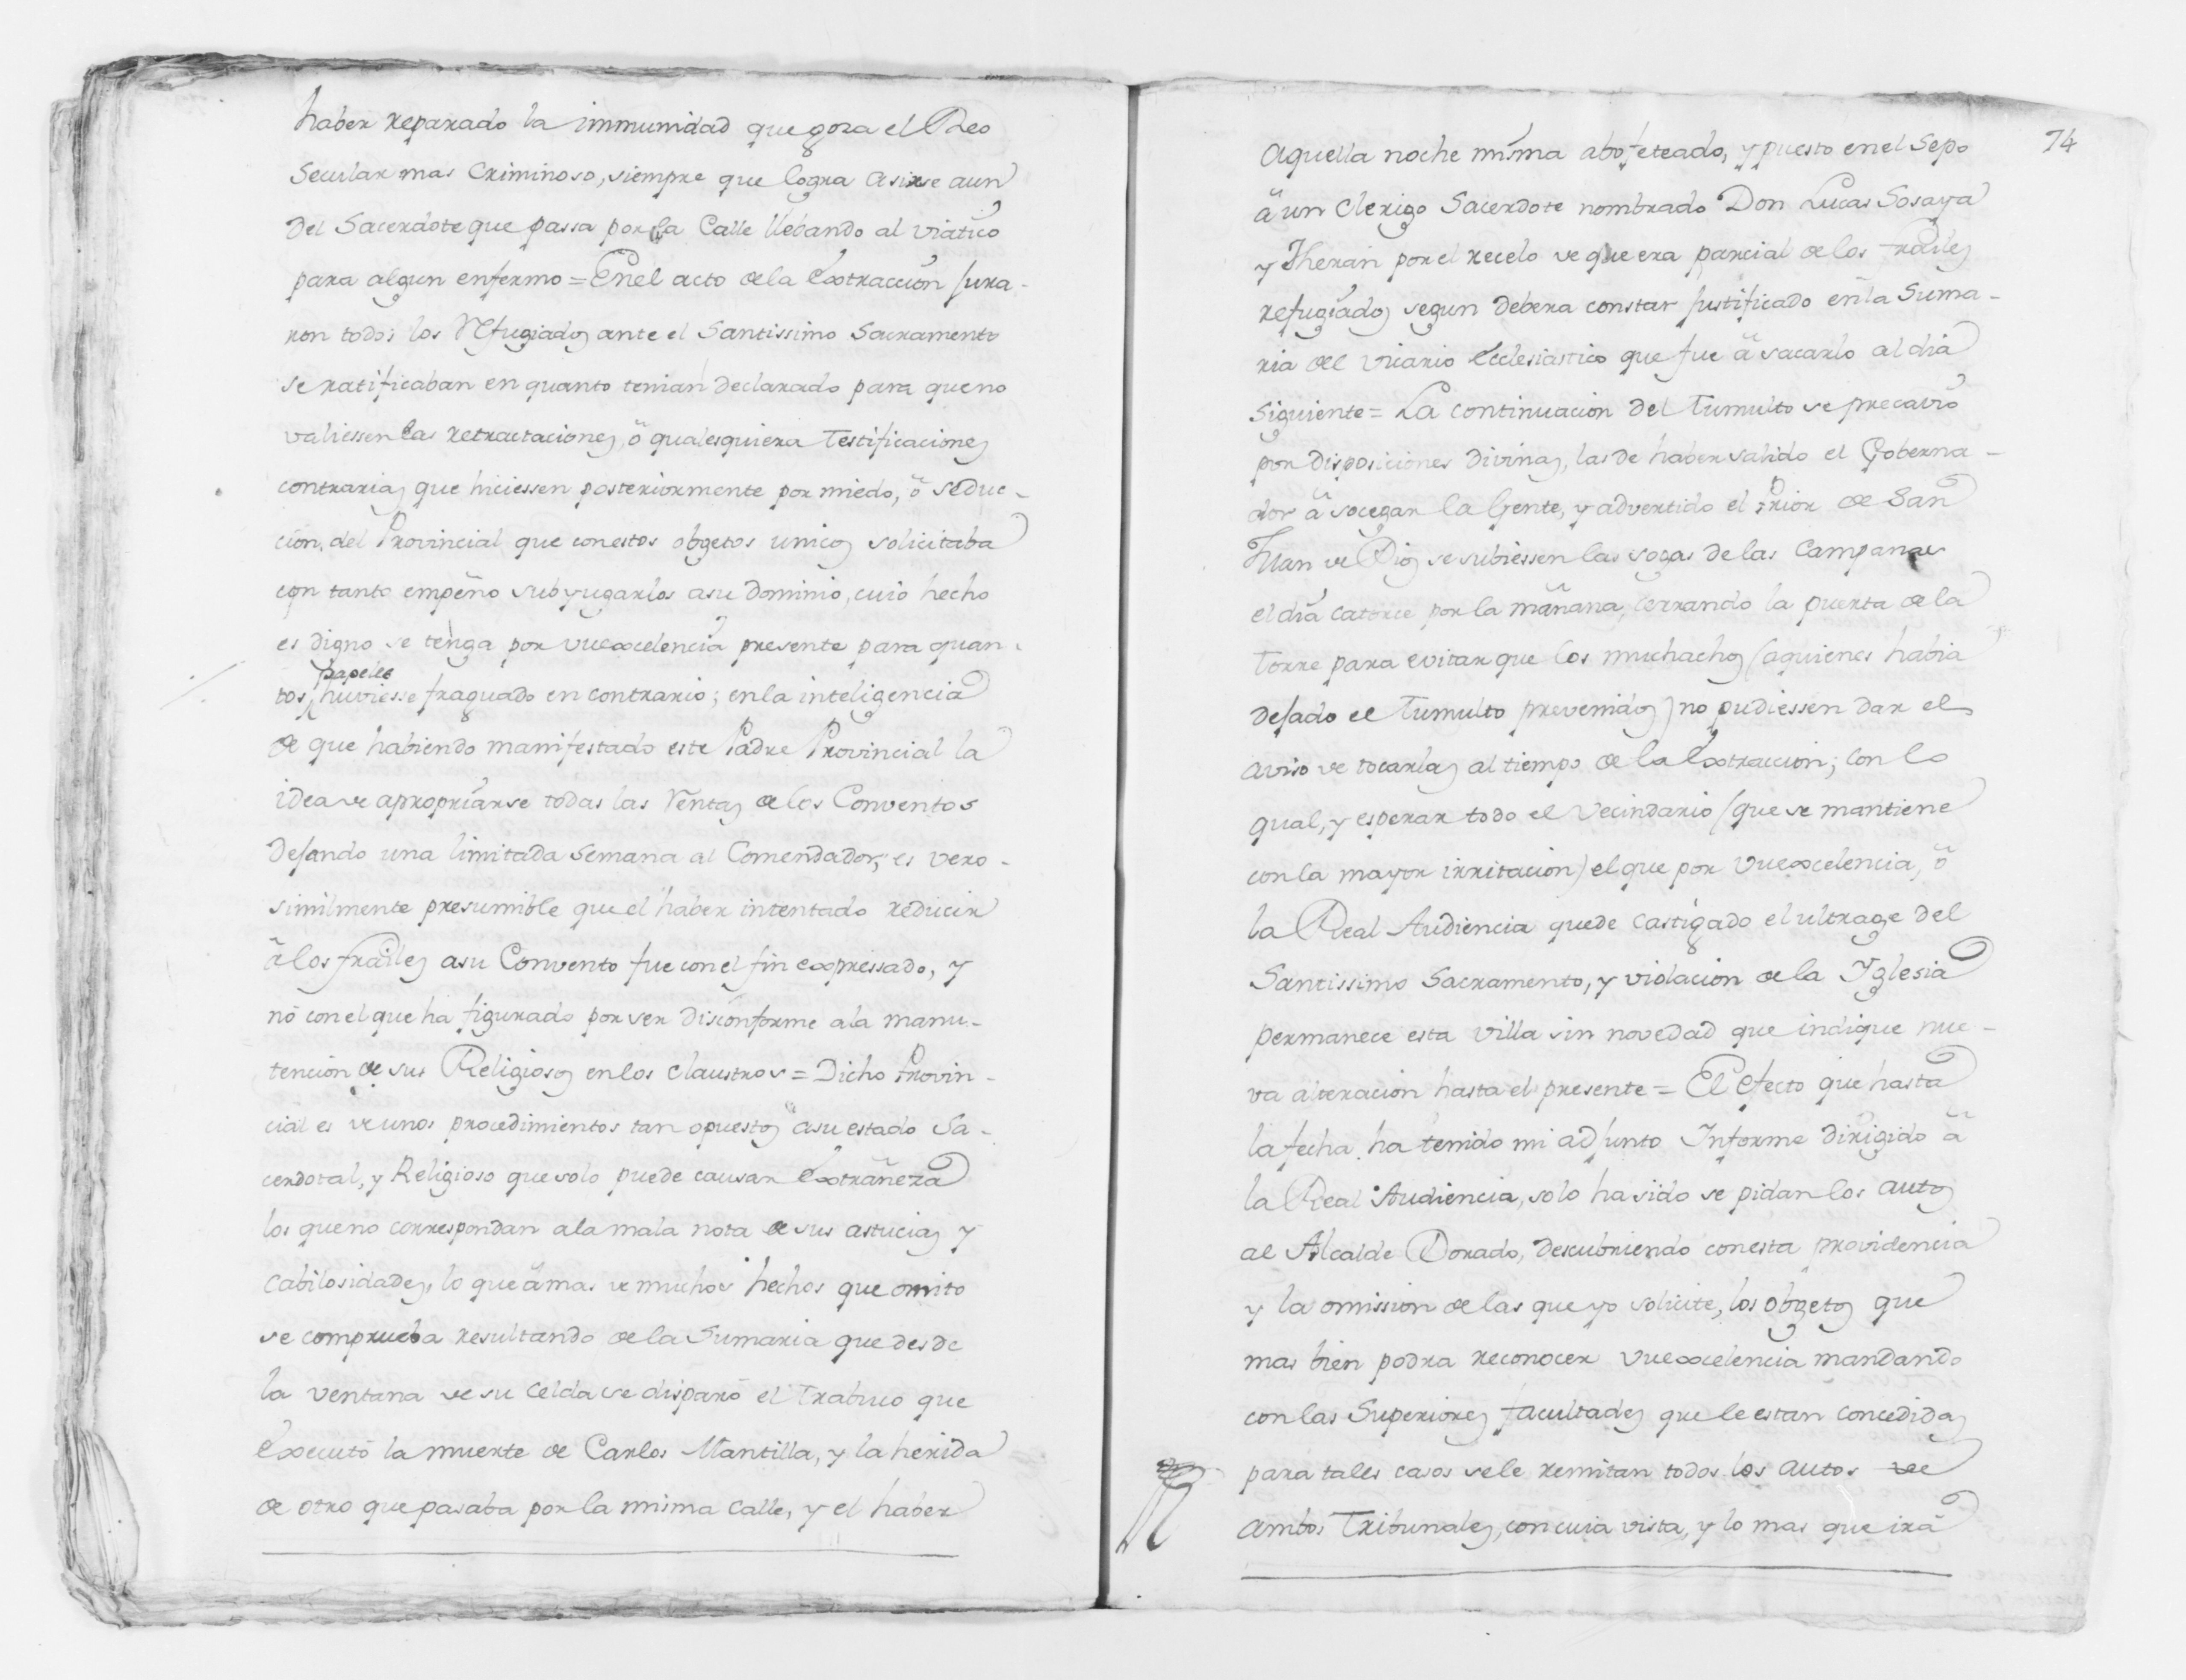 haber reparado la immunidad que goza el Reo
Secular mas Criminoso, siempre que logra asirse aun
del Sacerdote que passa por la Calle llebando al viatico
para algun enfermo = En el acto de la Extraccion jura-
ron todos los Refugiados ante el Santissimo Sacramento
se ratificaban en quanto tenian declarado para que no
valiessen las retractaciones, ò qualesquiera testificaciones
contrarias que hiciessen posteriormente por miedo, ò seduc-
cion del Provincial que con estos obgetos unicos solicitaba
con tanto empeño subyugarlos a su dominio, cuio hecho
es digno se tenga por Vuexcelencia presente para quan-
papeles
tos huviesse fraguado en contrario; en la inteligencia
de que habiendo manifestado este Padre Provincial la
idea de apropriarse todas las Rentas de los Conventos
dejando una limitada semana al Comendador, es vero-
similmente presumible que el haber intentado reducir
à los frailes a su Convento fue con el fin expressado, y
nó con el que ha figurado por ser disconforme a la manu-
tencion de sus Religiosos en los claustros = Dicho Provin-
cial es de unos procedimientos tan opuestos à su estado Sa-
cerdotal, y Religioso que solo puede causar Extrañeza
los que no correspondan a la mala nota de sus astucias y
Cabilosidades, lo que àmas de muchos hechos que omito
se comprueba resultando de la Sumaria que desde
la ventana de su celda se disparó el Trabuco que
Executó la muerte de Carlos Mantilla, y la herida
de otro que pasaba por la misma calle, y el haber
74
aquella noche misma abofeteado, y puesto en el Sepo
à un Clerigo Sacerdote nombrado Don Lucas Sosaya
y Theran por el recelo de que era parcial de los frailes
refugiados segun debera constar justificado en la Suma-
ria del Vicario Ecclesiastico que fue à sacarlo al dia
siguiente = La continuacion del Tumulto se precavió
por disposiciones divinas, las de haber salido el Goberna-
dor à socegar la Gente, y advertido el Prior de San
Juan de Dios se subiessen las sogas de las Campanas
el dia catorce por la mañana, cerrando la puerta de la
torre para evitar que los muchachos (aquienes habia
dejado el Tumulto prevenidos) no pudiessen dar el
aviso de tocarlas al tiempo de la Extraccion; con lo
qual, y esperar todo el Vecindario (que se mantiene
con la mayor irritacion) el que por Vuexcelencia, ò
la Real Audiencia quede castigado el ultrage del
Santissimo Sacramento, y violacion de la Yglesia
permanece esta Villa sin novedad que indique nue-
va alteracion hasta el presente = El efecto que hasta
la fecha ha tenido mi adjunto Informe dirigido à
la Real Audiencia, solo ha sido se pidan los autos
al Alcalde Dorado, descubriendo con esta providencia
y la omission de las que yo solicite, los obgetos que
mas bien podra reconocer Vuexcelencia mandando
con las Superiores facultades que le estan concedidas
para tales casos se le remitan todos los autos de
ambos Tribunales, con cuia vista, y lo mas que irà